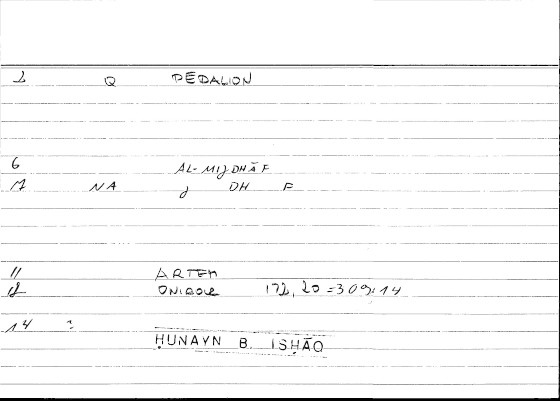 2 Q PĒDALION
6 AL-MIJDHĀF
M NA J DH F
11 ARTEM
12 ONIROCR 172, 20 = 309:14
14 ?
ḤUNAYN B. ISḤĀQ